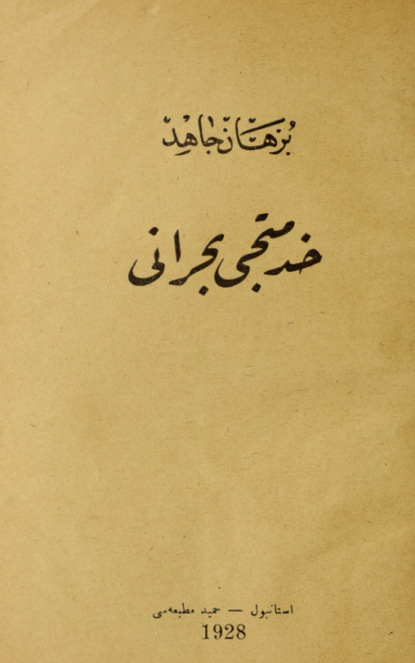 برهان جاهد
خدمتجی بحرانی
استانبول — حمید مطبعه‌سی
1928